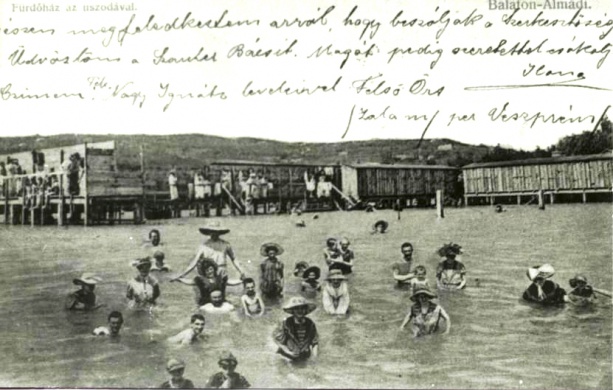 Fürdőház az uszodával.
Balaton-Almádi.
észen megfeledkeztem arról, hogy beszóljak a szerkesztőség
Üdvözlöm a Szauter Bácsit. Magát pedig szeretettel csókolj
Ilona
Czimem: Nagy Ignátz levelével Felső Örs
(Zala m) per Veszprém)